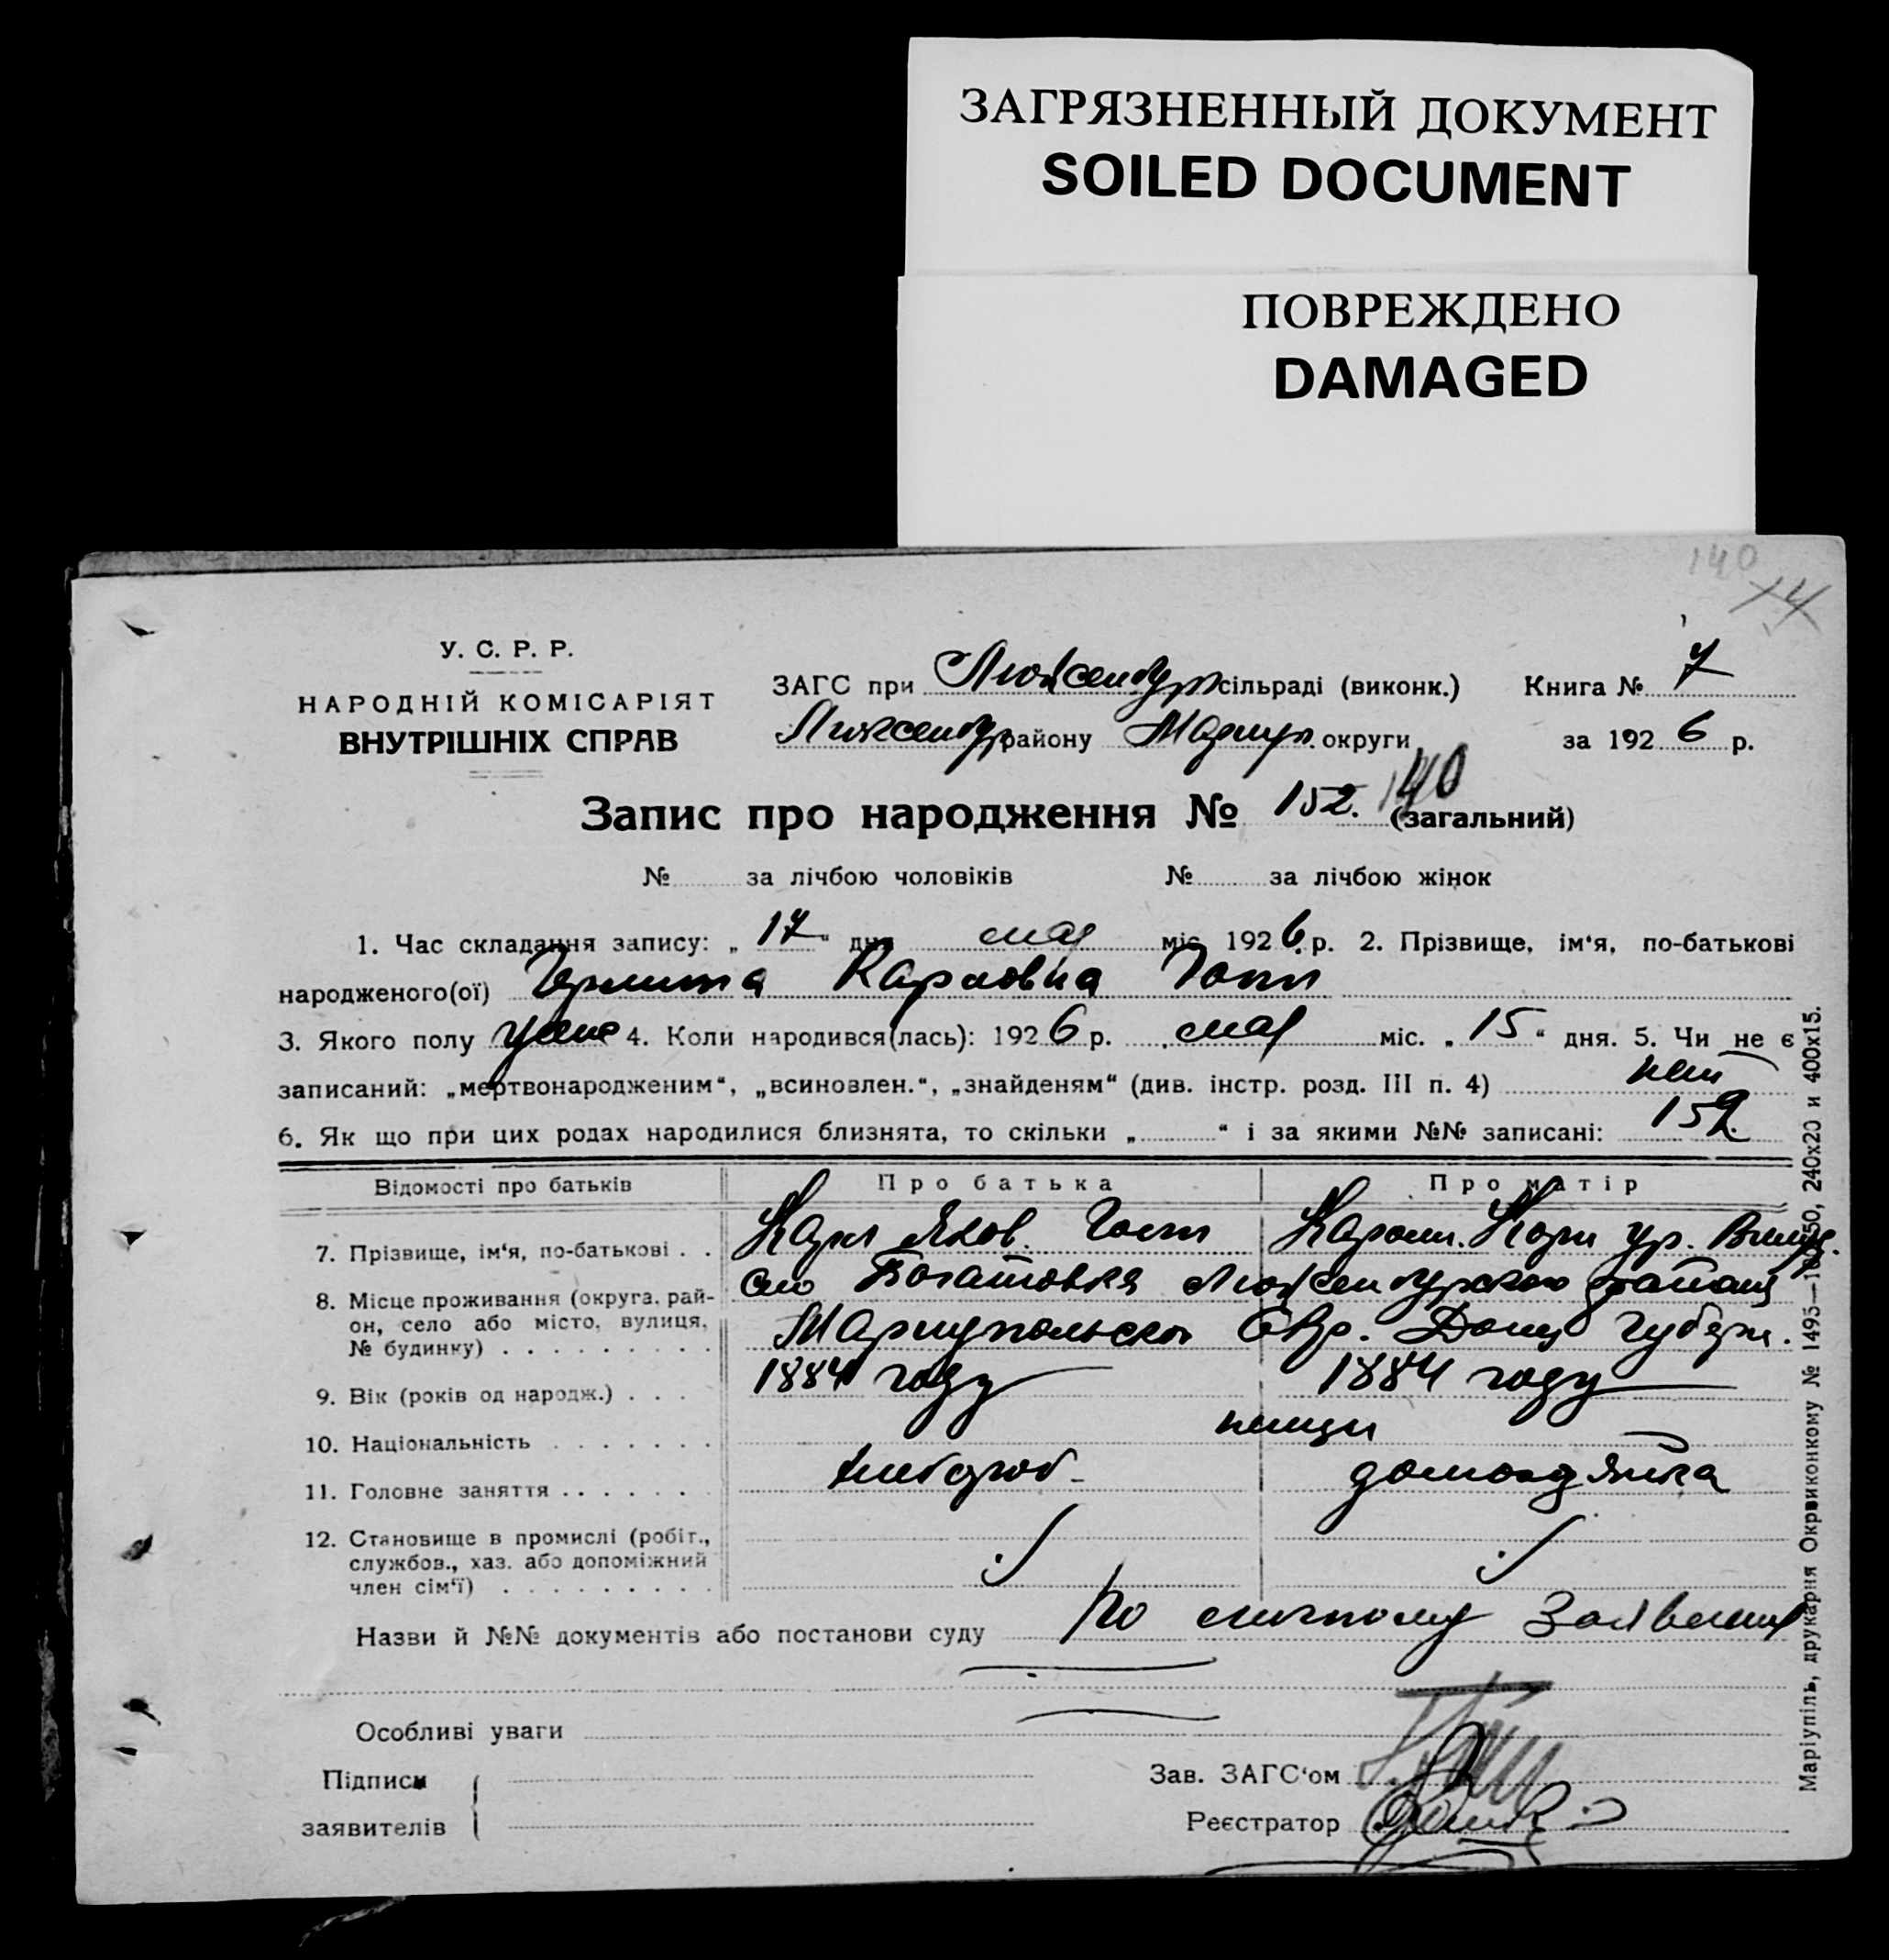 ЗАГРЯЗНЕННЫЙ ДОКУМЕНТ
SOILED DOCUMENT
ПОВРЕЖДЕНО
DAMAGED
140
У. С. Р. Р.
НАРОДНІЙ КОМІСАРІЯТ
ВНУТРІШНІХ СПРАВ
ЗАГС при Люксембург сільраді (виконк.) Книга № 7
Люксембур району Мариуп. округи за 1926 р.
Запис про народження № 152. 140 (загальний)
№ за лічбою чоловіків № за лічбою жінок
1. Час складання запису: „17“ дня мая міс. 1926 р. 2. Прізвище, ім‘я, по-батькові
народженого(ої) Карловна
3. Якого полу 4. Коли народився(лась): 1926 р. мая міс. „15“ дня. 5. Чи не є
записаний: „мертвонародженим“, „всиновлен.“, „знайденям“ (див. інстр. розд. III п. 4) нет
6. Як що при цих родах народилися близнята, то скільки „ “ і за якими №№ записані: 152.
Відомості про батьків Про батька Про матір
7. Прізвище, ім‘я, по-батькові . . Карл Яков. ур.
8. Місце проживання (округа, рай-
он, село або місто, вулиця,
№ будинку) . . . . . . . . .
Село Богатовка Люксембургского района
Мариупольского Окр. Донец Губерн.
9. Вік (років од народж.) . . . 1884 году 1884 году
10. Національність . . . . . . . немцы
11. Головне заняття . . . . . . хлебороб- домохозяйка
12. Становище в промислі (робіт.,
службов., хаз. або допоміжний
член сім‘ї) . . . . . . . . .
Назви й №№ документів або постанови суду По личному Заявлению
Особливі уваги
Підписи
заявителів
Зав. ЗАГС‘ом
Реєстратор
Маріупіль, друкарня Окрвиконкому № 1495—10050, 240x20 и 400x15.